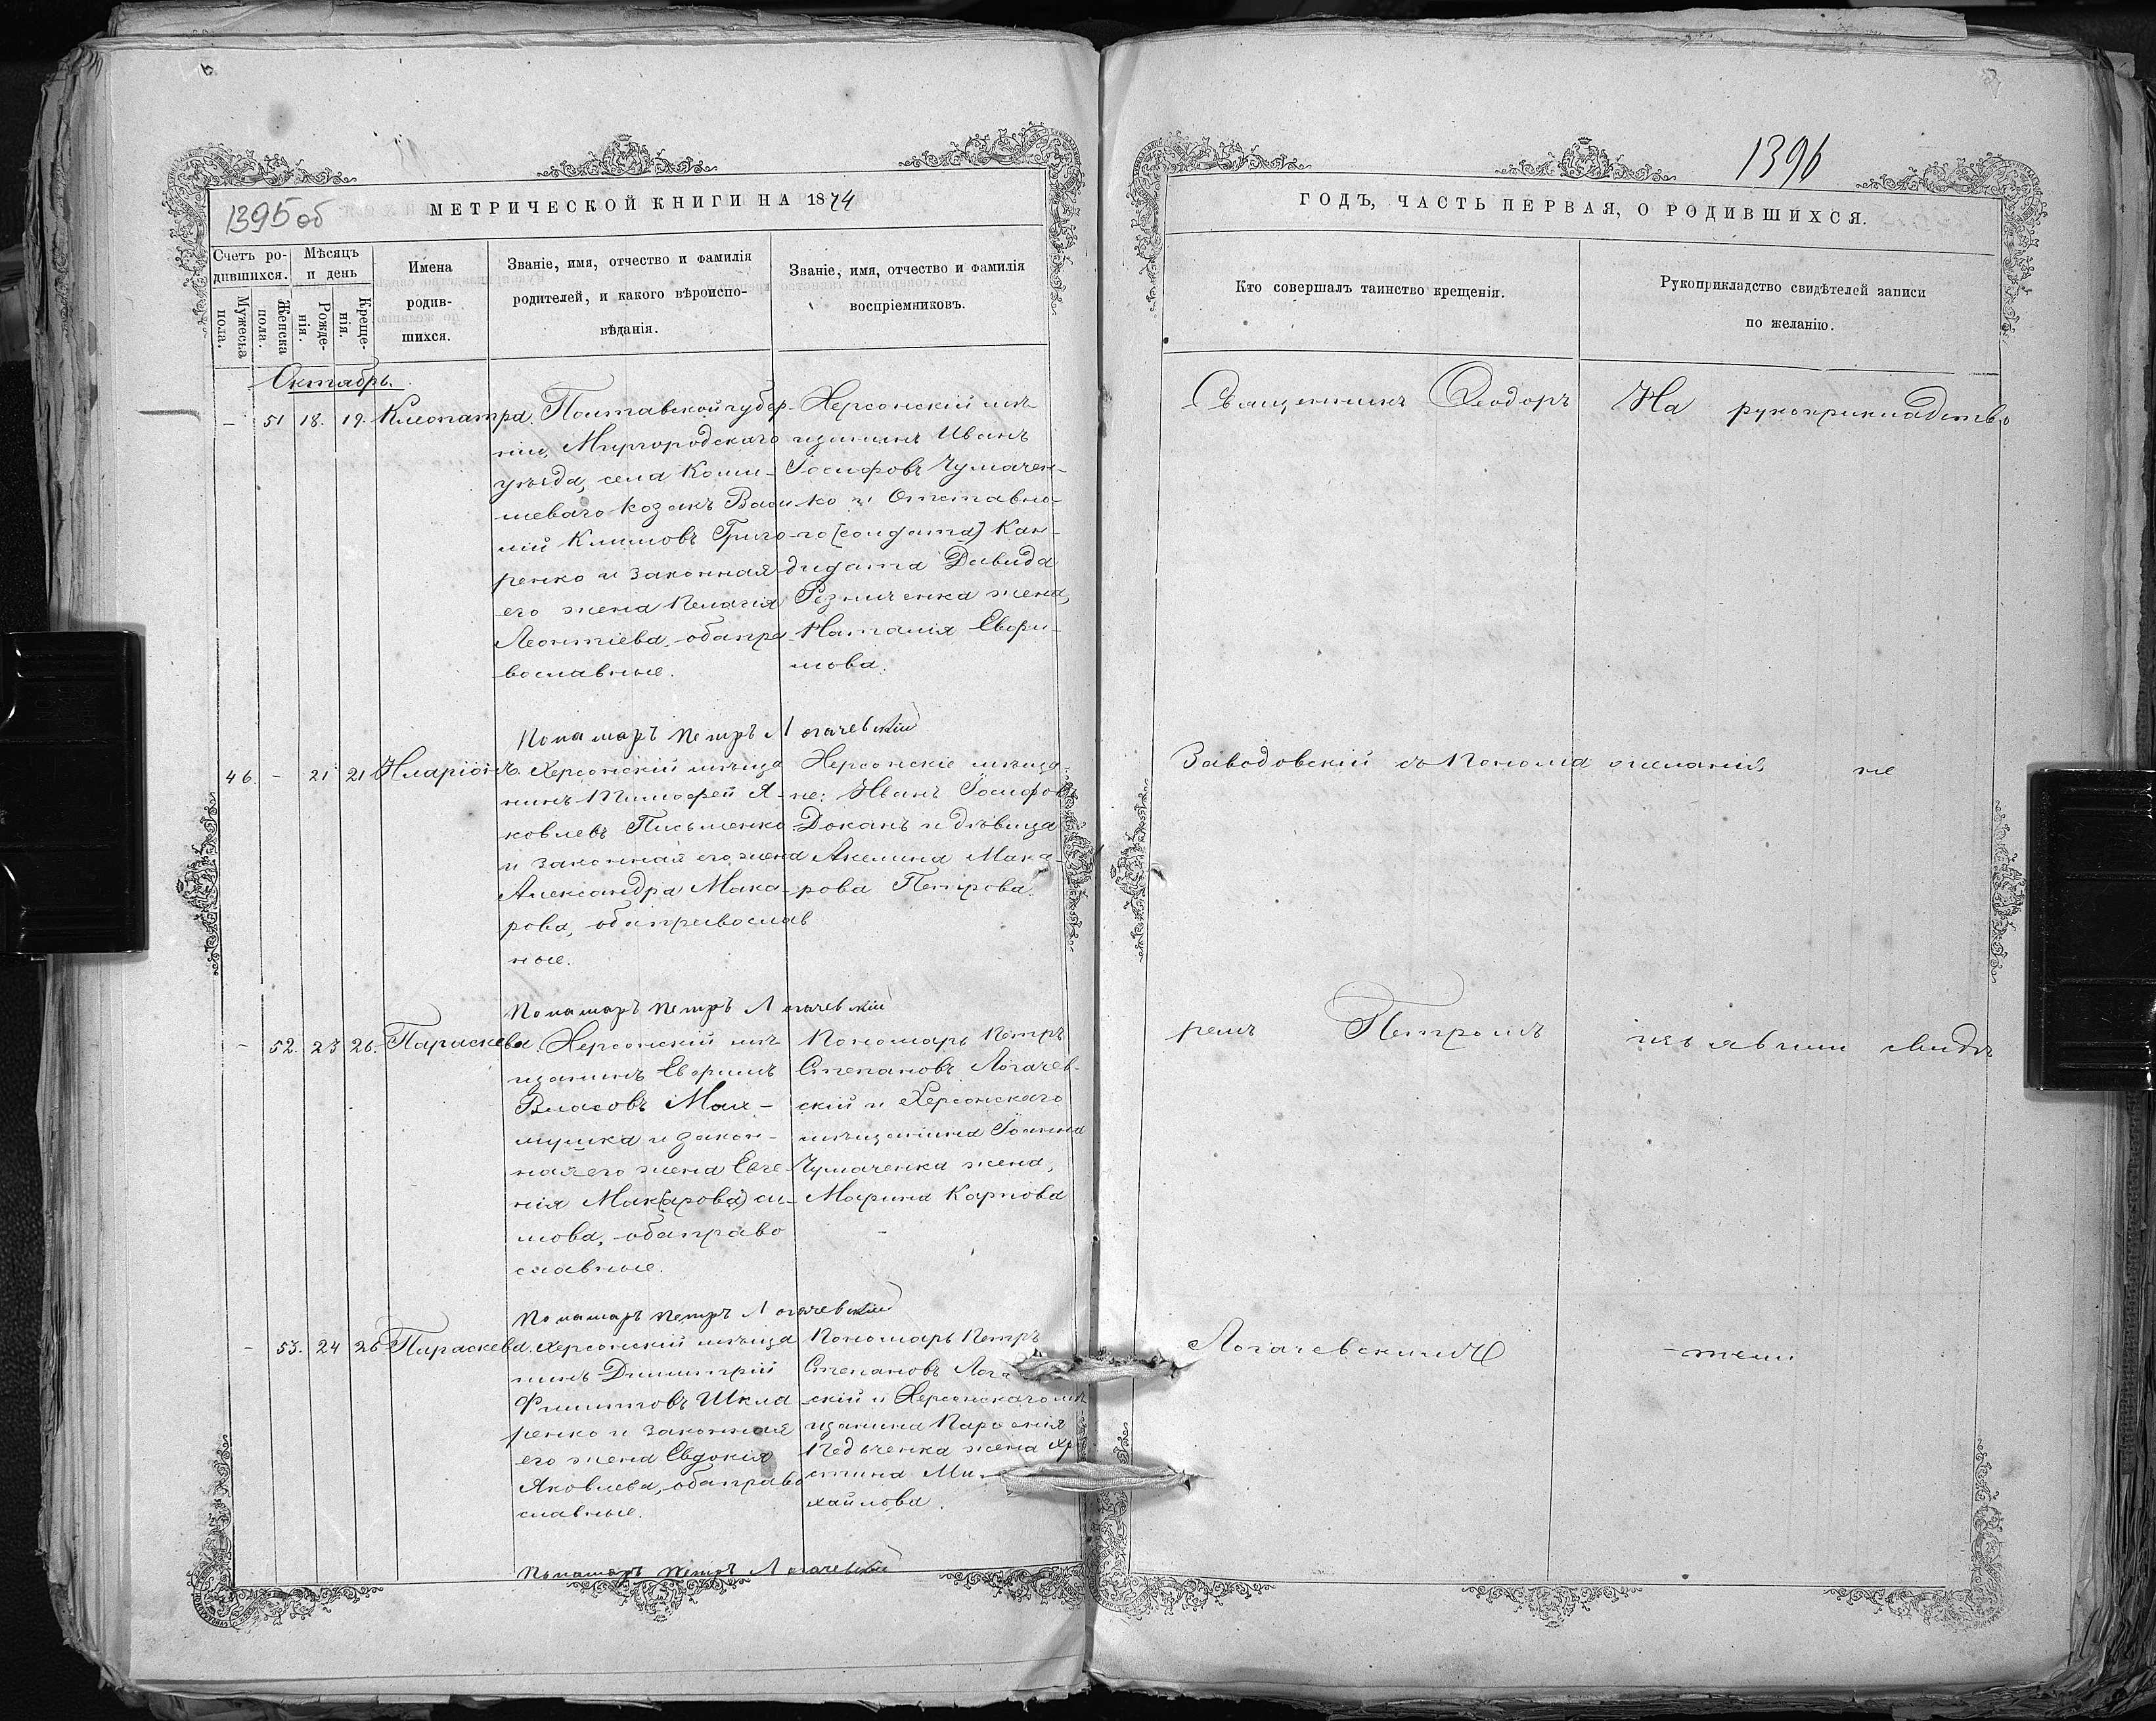 1395об
МЕТРИЧЕСКОЙ КНИГИ НА 1874
Счетъ ро-
дившихся.
Мѣсяцъ
и день
Мужеска
пола.
Женска
пола.
Рожде-
нія.
Креще-
нія.
Имена
родив-
шихся.
Званіе, имя, отчество и фамилія
родителей, и какого вѣроиспо-
вѣданія.
Званіе, имя, отчество и фамилія
воспріемниковъ.
Октябрь.
– 51 18. 19. Клеопатра.
Полтавской губер-
ніи, Миргородскаго
уѣзда, села Коми-
шеваго козакъ Васи-
лій Климовъ Григо-
ренко и законная
его жена Пелагія
Леонтіева, оба пра-
вославные.
Херсонскій мѣ-
щанинъ Иванъ
Іосифовъ Чумачен-
ко и Отставно-
го (солдата) Кан-
дидата Давида
Резниченка жена,
Наталія Ефри-
мова.
Пономарь Петръ Логачевскій
46. – 21 21 Иларіонъ.
Херсонскій мѣща
нинъ Тимофей Я-
ковлевъ Письменко
и законная его жена
Александра Мака-
рова, оба православ
ные.
Херсонскіе мѣща-
не: Иванъ Іосифовъ
Докань и дѣвица
Акелина Мака-
рова Петрова.
Пономарь Петръ Логачевскій
– 52. 23 26. Параскева.
Херсонскій мѣ-
щанинъ Ефримъ
Власовъ Мах-
мушка и закон-
ная его жена Евге-
нія Мак(арова) си-
мова, оба право
славные.
Пономарь Петръ
Степановъ Логачев-
скій и Херсонскаго
мѣщанина Іоанна
Чумаченка жена,
Марина Карпова
Пономарь Петръ Логачевскій
– 53. 24 26 Параскева.
Херсонскій мѣща
нинъ Димитрій
Филиповъ Шкла
ренко и законная
его жена Евдокія
Яковлева, оба право
славные.
Пономарь Петръ
Степановъ Лога
скій и Херсонскаго мѣ
щанина Парфенія
жена Хри
стина Ми-
хайлова.
Пономарь Петръ Логачевскій
1396
ГОДЪ, ЧАСТЬ ПЕРВАЯ, О РОДИВШИХСЯ.
Кто совершалъ таинство крещенія.
Рукоприкладство свидѣтелей записи
по желанію.
Священникъ Ѳеодоръ
Заводовскій съ Понома
ремъ Петромъ
Логачевскимъ
На рукоприкладство
желанія не
изъявили свидѣ
тели